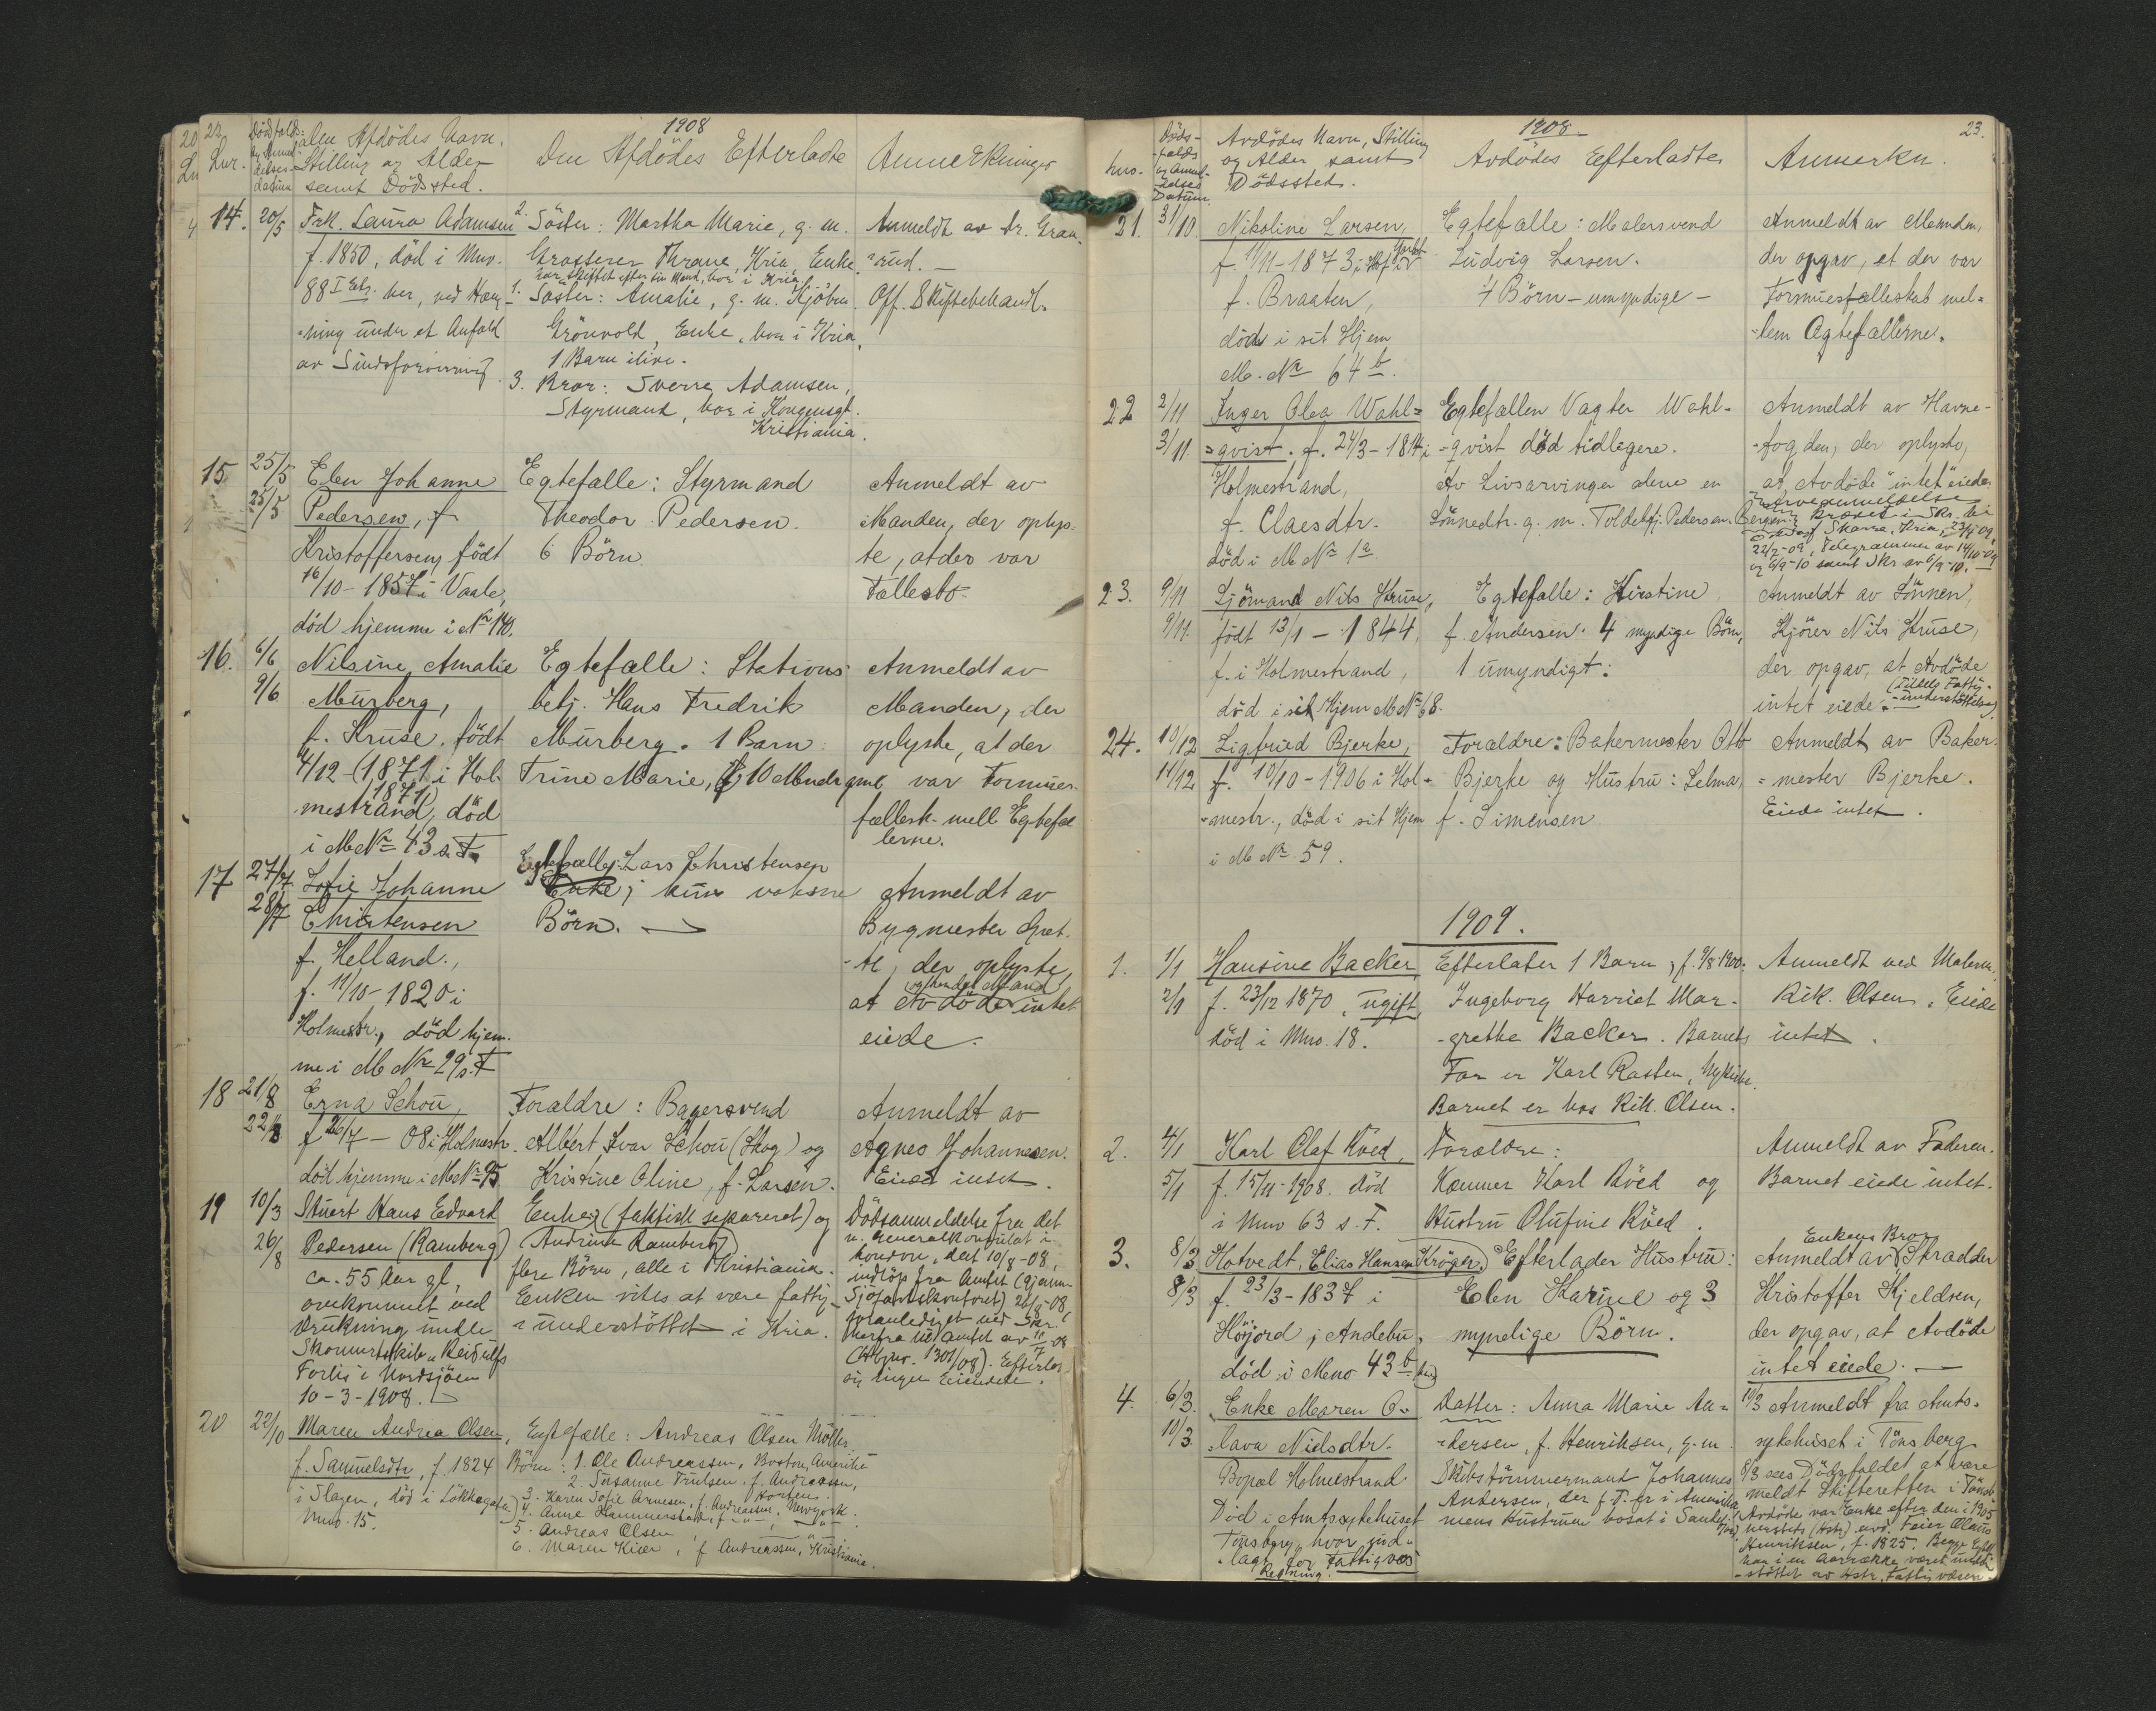 22
1908
Lnr.
Dödsfalds-
og Anmel-
delses-
datum
Den Afdödes Navn,
Stilling og Alder
samt Dödssted.
Den Afdödes Efterladte
Anmerkninger
14. 20/5 Frk. Laura Adamsen
f. 1850, död i Mno.
88 I Etg. her, ved Hæng-
-ning under et Anfald
av Sindsforvirring.
2. Söster: Martha Marie, g. m.
Grosserer Thrane, Kria, Enke.
har skiftet efter sin Mand, bor i Kria
1. Söster: Amalie, g. m. Kjöbm.
Grönvold, Enke, bor i Kria,
1 Barn ilive.
3. Bror: Sverre Adamsen,
Styrmand, bor i Kongensgt.
Kristiania.
Anmeldt av Dr. Gran-
-rud. —
Off. Skiftebehandl.
15 25/5
25/5
Elen Johanne
Pedersen, f.
Kristoffersen, födt
16/10 - 1857 i Vaale,
död hjemme i No 140.
Egtefælle: Styrmand
Theodor Pedersen.
6 Börn.
Anmeldt av
Manden, der oplys-
te, at der var
Fællesbo-
16. 6/6
9/6
Nilsine Amalie
Murberg,
f. Kruse, födt
4/12 - (1871 i Hol-
1871)
mestrand, död
i M No 43 s. F.
Egtefælle: Stations-
betj. Hans Fredrik
Murberg. 1 Barn:
Trine Marie, 10 Mndr gml.
Anmeldt av
Manden, der
oplyste, at der
var Formues-
fællesk. mell. Egtefæl
lerne.
17 27/7
28/7
Sofie Johanne
Christensen
f. Helland.,
f. 11/10 - 1820 i
Holmestr., död hjem-
me i M No 29 s. F
Egtefælle: Lars Christensen
Enke; kun voksne
Börn. —
Anmeldt av
Bygmester Gret-
-te, der oplyste,
(og hendes Mand)
at Avdöde intet
eiede.
18 21/8
22/8
Erna Schou,
f. 26/7 - 08 i Holmestr.
död hjemme i M No 95
Forældre: Bagersvend
Albert Ivar Schou (Skog) og
Kristine Oline, f. Larsen.
Anmeldt av
Agnes Johannesen.
Eied intet.
19 10/3
26/8
Stuert Hans Edvard
Pedersen (Ramberg)
ca. 55 Aar gl,
omkommet ved
Drukning under
Skonnertskib „Reidulfs
Forlis i Nordsjöen
10 - 3 - 1908.
Enke (faktisk separeret) og
(Andrine Ramberg)
flere Börn, alle i Kristiania.
Enken vites at være fattig-
-understöttet i Kria.
Dödsanmeldelse fra det
n. Generalkonsulat i
London, dat 10/8 - 08,
indlöp fra Amtet (gjennem
Sjöfartskontoret) 26/8 - 08,
foranlediget ved Skr.
herfra til Amtet av 11/7 - 08
1301/08). Efterlot
sig ingen Eiendele.
20 22/10 Maren Andrea Olsen,
f. Samuelsdtr, f. 1824
i Slagen, död i Lökkegaten)
Mno. 15.
Egtefælle: Andreas Olsen Möller.
Börn: 1. Ole Andreassen, Boston, Amerika
2. Susanne Trulsen f. Andreassen,
Horten.
3. Karen Sofie Arnesen, f. Andreassen, Newyork.
4. Anne Hammerstad, f. — " —, — " —
5. Andreas Olsen, — " —
6. Maren Kiær, f. Andreassen, Kristiania.
1908-
23.
Lno.
Döds-
-falds
og Anmel-
-delses
Datum.
Avdödes Navn, Stilling
og Alder samt
Dödssted.
Avdödes Eefterladte
Anmerkn.
21. 31/10. Nikoline Larsen,
f. 11/11 - 1873 i
f. Braaten,
död i sit Hjem
M. No 64 b.
Egtefælle: Malersvend
Ludvig Larsen.
4 Börn - umyndige -
Anmeldt av Manden,
der opgav, at der var
Formuesfællesskab mel-
-lem Ægtefællerne.
22 2/11
3/11.
Inger Olea Wahl-
-qvist. f. 24/3 - 1814 i
Holmestrand,
f. Claesdtr.
död i M No 1a
Egtefællen Vagter Wahl-
-qvist död tidligere.
Av Livsarvinger alene en
Sönnedtr. g. m. Toldbetj. Pedersen, Bergen.
Anmeldt av Havne-
-fogden, der oplyste,
at Avdöde "intet" eiede.
22/7-09, Telegrammer av 14/10-09
og 6/9-10 samt Skr av 6/9-10. —
23. 9/11
9/11.
Sjömand Nils Kruse,
födt 13/1 - 1844,
f. i Holmestrand,
död i sit Hjem M No 68.
Egtefælle: Kirstine
f. Andersen. 4 myndige Börn,
1 umyndigt.
Anmeldt av Sönnen,
Kjörer Nils Kruse,
der opgav, at Avdöde
(Tildels Fattig-
-understöttelse)
intet eiede.
24. 10/12
11/12
Sigfried Bjerke,
f. 10/10 - 1906 i Hol-
-mestr., död i sit Hjem
i M No 59.
Forældre: Bakermester Otto
Bjerke og Hustru: Selma,
f. Simensen
Anmeldt av Baker-
-mester Bjerke.
Eiede intet.
1909.
1. 1/1
2/1
Hansine Backer
f. 23/12 1870, ugift,
död i Mno. 18.
Efterlater 1 Barn, f. 9/8-1900:
Ingeborg Harriet Mar-
-grethe Backer. Barnets
Far er Karl Rasten, Nykirke.
Barnet er hos Rik. Olsen.
Anmeldt ved Malerm.
Rik. Olsen. Eiede
intet.
2. 4/1
5/1
Karl Olaf Röed,
f. 15/11-1908. död
i Mno 63 s. F.
Forældre:
Kæmner Karl Röed og
Hustru Olufine Röed.
Anmeldt av Faderen.
Barnet eiede intet.
3. 8/3
8/3
Hotvedt, Elias Hansen (Kröger.)
f. 23/3 - 1837 i
Höjjord, i Andebu,
död i Mno 43 b
Efterlader Hustru:
Elen Karine og 3
myndige Börn.
Enkens Bror
Anmeldt av Skrædder
Kristoffer Kjeldsen,
der opgav, at Avdöde
intet eiede. —
4. 6/3.
10/3.
Enke Maren O-
-lava Nielsdtr.
Bopæl Holmestrand
Död i Amtssykehuset
Tönsberg, hvor ind-
-lagt for Fattigves
Regning.
Datter: Anna Marie An-
-dersen, f. Henriksen, g. m.
Skibstömmermand Johannes
Andersen, der f. T. er i Amerika,
mens Hustruen bosat i Sande
10/3 Anmeldt fra Amts-
sykehuset i Tönsberg.
8/3 sees Dödsfaldet at være
meldt Skifteretten i Tönsb
Avdöde var Enke efter den i 1905
herstets (Hstr) avd. Feier Olaus
Henriksen, f. 1825. Begge Egtef.
har i en Aarrække været under-
-stöttet av Hstr. Fattigvæsen.